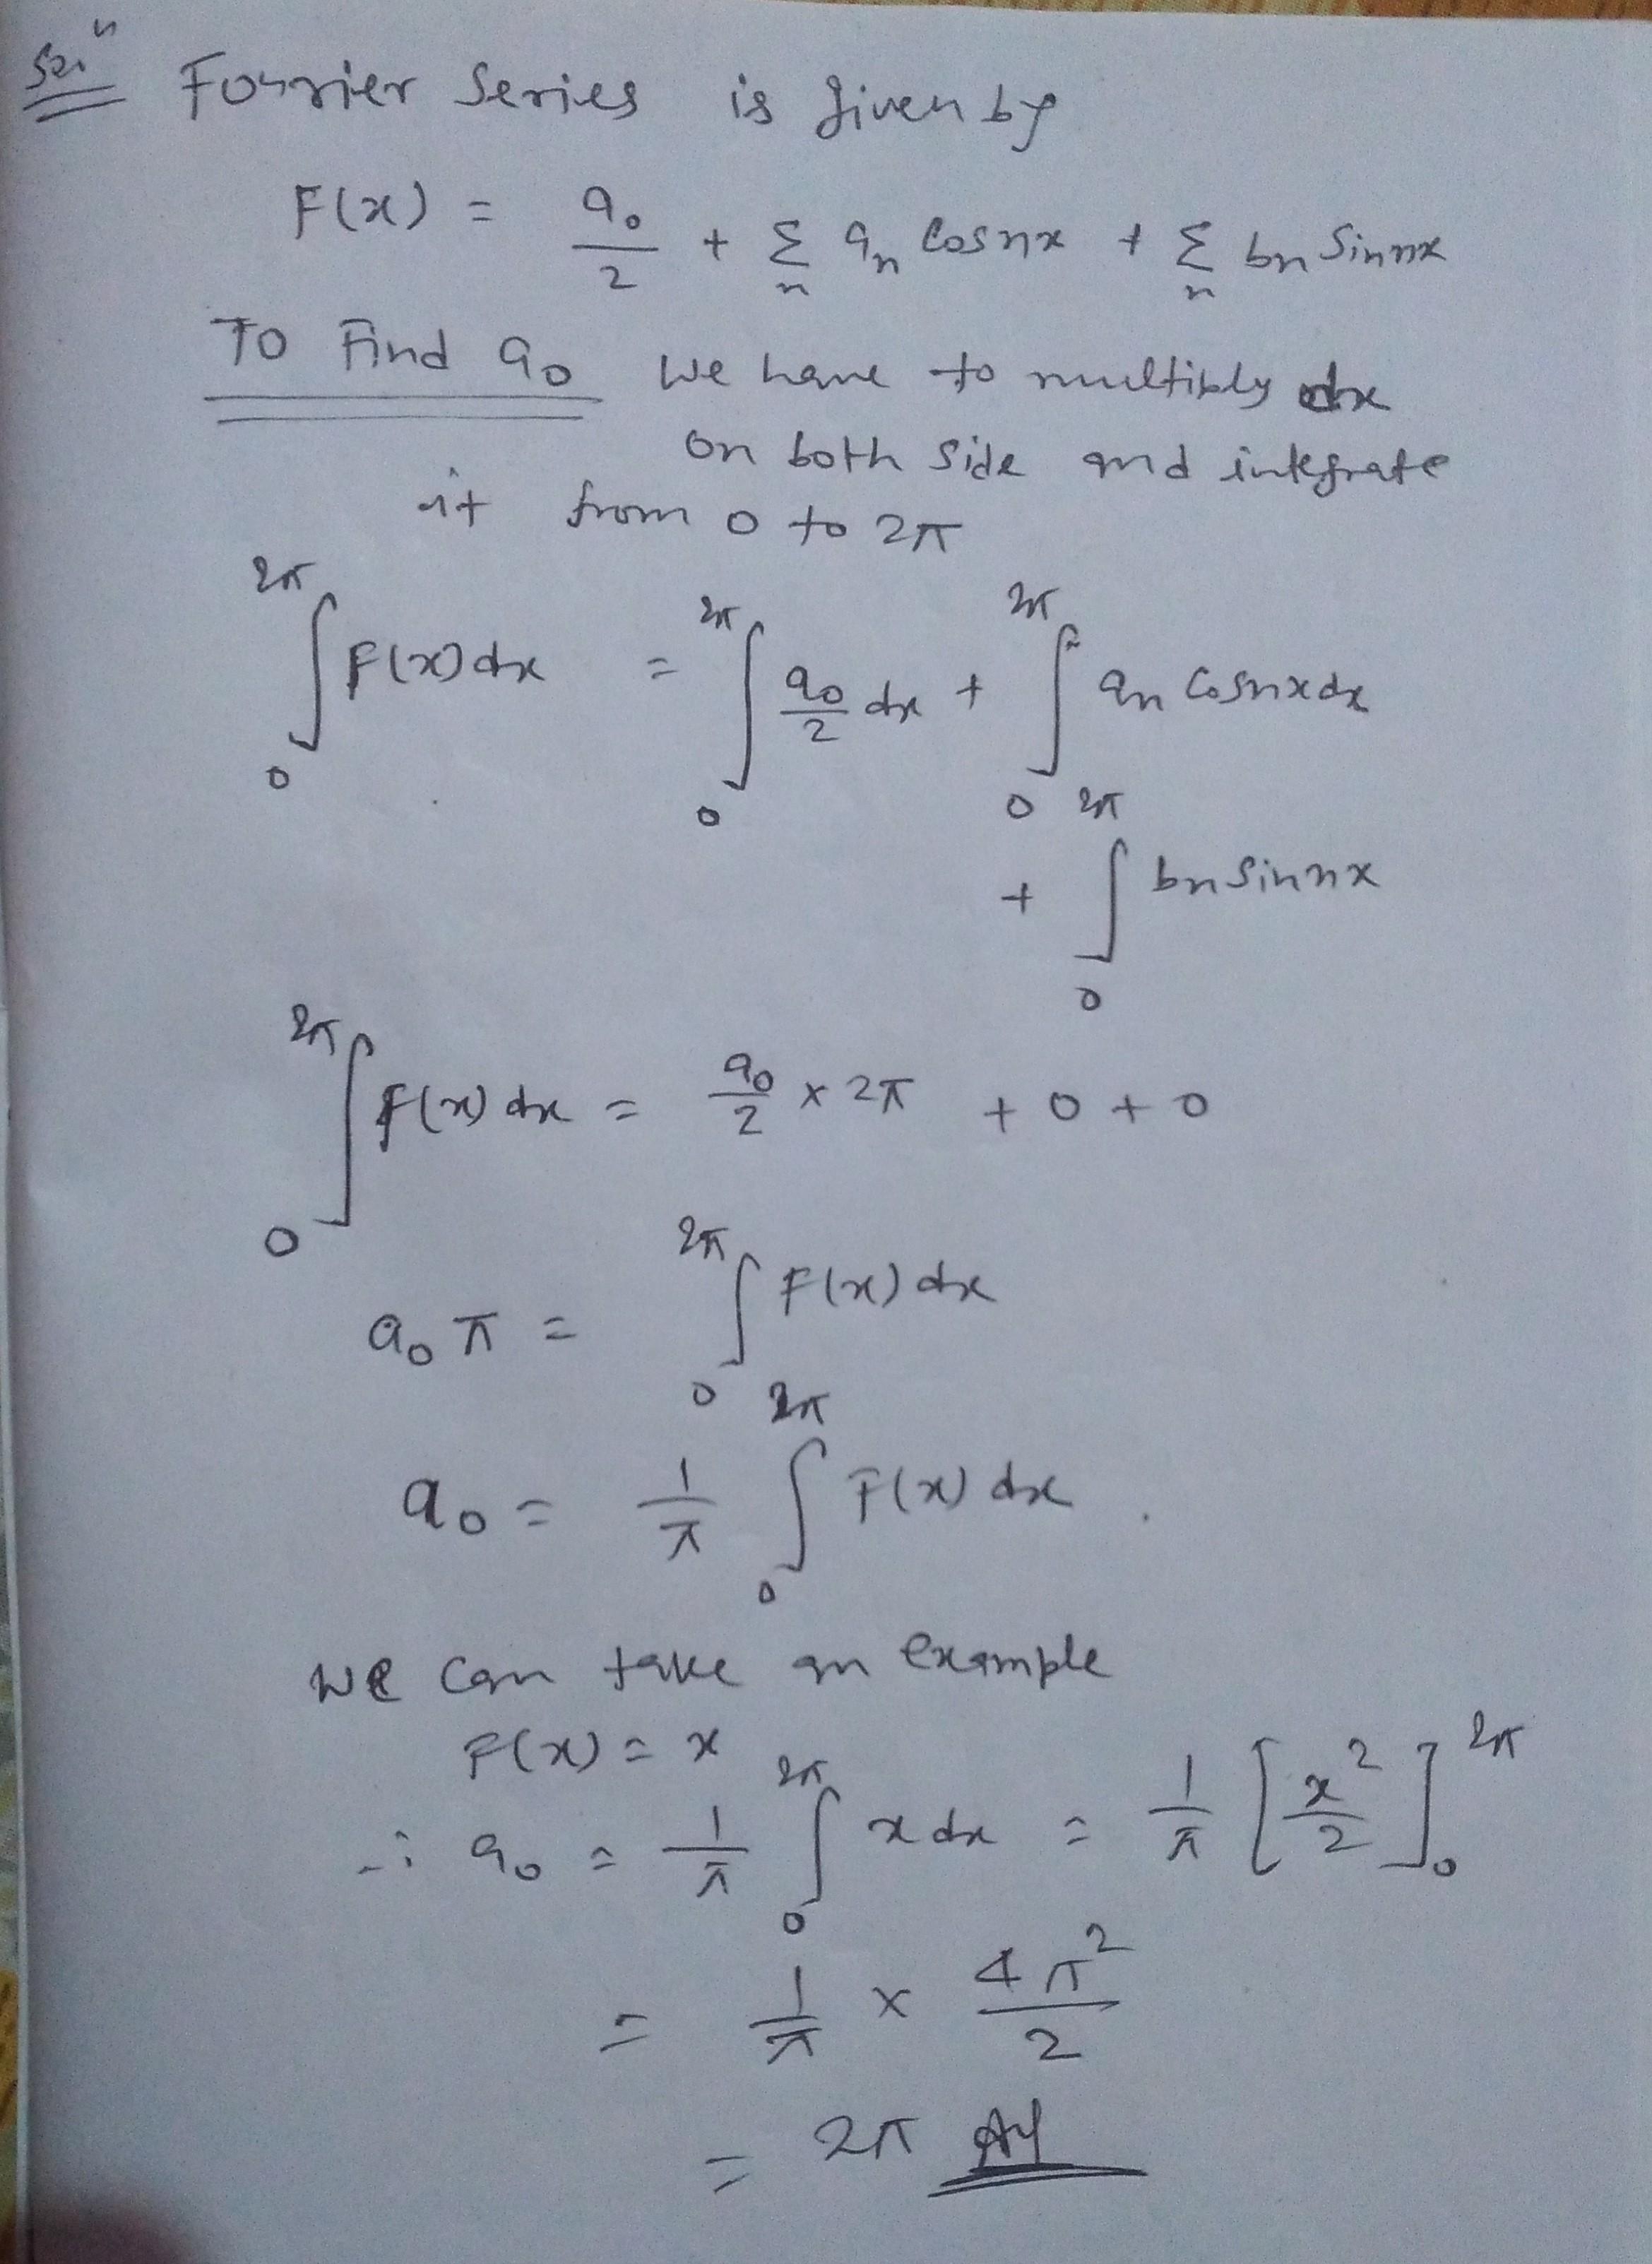 Solⁿ Fourier Series is given by
F(x) = a₀/2 + Σₙ aₙ Cosnx + Σₙ bₙ Sinnx
To Find a₀ we have to multiply dx
on both side and integrate
it from 0 to 2π
∫₀^2π F(x)dx = ∫₀^2π a₀/2 dx + ∫₀^2π aₙ Cosnxdx
+ ∫₀^2π bₙ Sinnx
∫₀^2π F(x)dx = a₀/2 × 2π + 0 + 0
a₀ π = ∫₀^2π F(x)dx
a₀ = 1/π ∫₀^2π F(x)dx .
We can take an example
F(x) = x
∴ a₀ = 1/π ∫₀^2π x dx = 1/π [x²/2]₀^2π
= 1/π × 4π²/2
= 2π